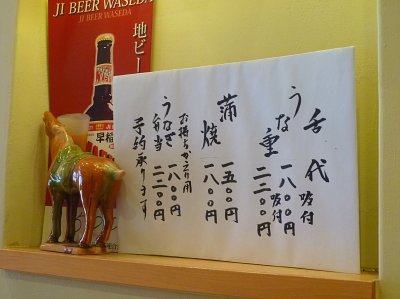 JI BEER WASEDA
JI BEER WASEDA
地ビー
早稲
舌代
うな重
一八〇〇円 吸付
二二〇〇円 吸付
蒲焼
一五〇〇円
一八〇〇円
お持ちかえり用
うなぎ弁当
一八〇〇円
二二〇〇円
予約承ります